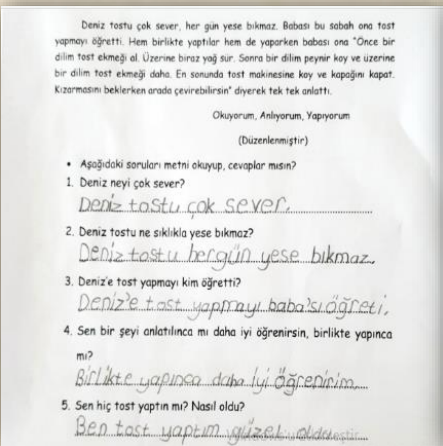 Deniz tostu çok sever, her gün yese bıkmaz. Babası bu sabah ona tost
yapmayı öğretti. Hem birlikte yaptılar hem de yaparken babası ona "Önce bir
dilim tost ekmeği al. Üzerine biraz yağ sür. Sonra bir dilim peynir koy ve üzerine
bir dilim tost ekmeği daha. En sonunda tost makinesine koy ve kapağını kapat.
Kızarmasını beklerken arada çevirebilirsin" diyerek tek tek anlattı.
Okuyorum, Anlıyorum, Yapıyorum
(Düzenlenmiştir)
• Aşağıdaki soruları metni okuyup, cevaplar mısın?
1. Deniz neyi çok sever?
Deniz tostu çok sever.
2. Deniz tostu ne sıklıkla yese bıkmaz?
Deniz tostu hergün yese bıkmaz.
3. Deniz'e tost yapmayı kim öğretti?
Deniz'e tost yapmayı baba'sı öğreti.
4. Sen bir şeyi anlatılınca mı daha iyi öğrenirsin, birlikte yapınca
mı?
Birlikte yapınca daha iyi öğrenirim.
5. Sen hiç tost yaptın mı? Nasıl oldu?
Ben tost yaptım güzel oldu